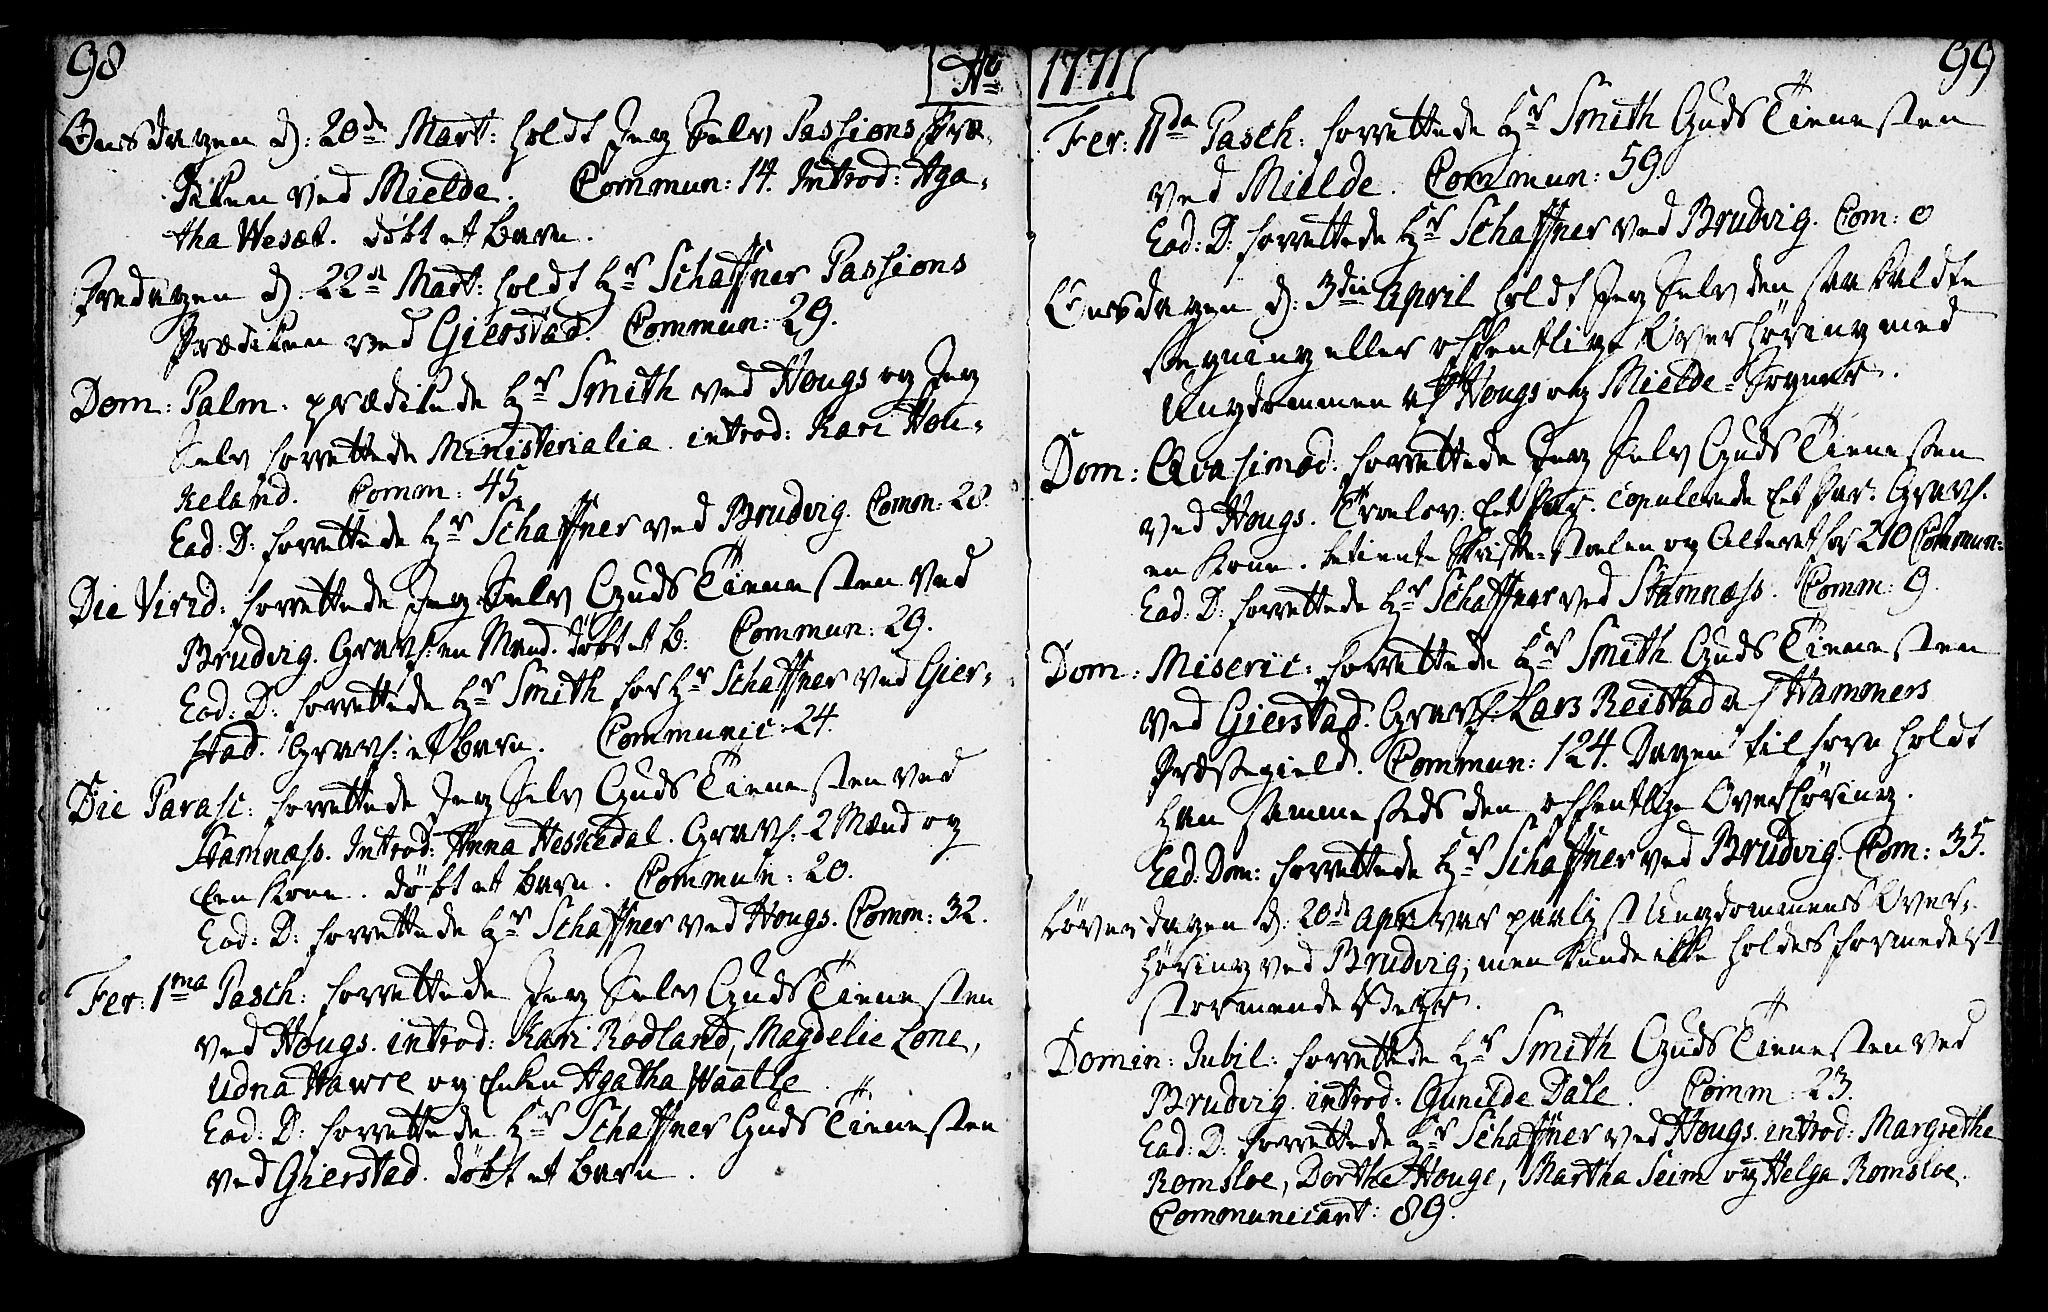 98
Ao
Onsdagen d: 20de Mart: holdt Jeg Selv Passions Præ-
diken ved Mielde. Commun: 14. Introd: Aga-
tha Wesæt. døbt et Barn.
Fredagen d: 22de Mart: holdt Hr Schaffner Passions
Prædiken ved Gierstad. Commun: 29.
Dom: Palm. prædikede Hr Smith ved Hougs og Jeg
Selv forrettede Ministerialia. introd: Kari Hou-
keland. Comm: 45
Ead: D: forrettede Hr Schaffner ved Brudvig. Comm: 28.
Die Virid: forrettede Jeg Selv Guds Tienesten ved
Brudvig. Grav: en Mand. døbt et B: Commun: 29.
Eod: D: forrettede Hr Smith for Hr Schaffner ved Gier-
stad. Grav: et Barn. Communic: 24.
Die Parasc: forrettede Jeg Selv Guds Tienesten ved
Stamnæss. Introd: Anna Heskedal. Grav: 2 Mænd og
Een Kone. døbt et Barn. Commun: 20.
Eod: D: forrettede Hr Schaffner ved Hougs. Comm: 32.
Fer: 1ma Pasch: forrettede Jeg Selv Guds Tienesten
ved Hougs. introd: Kari Rodland, Magdelie Lone,
Udna Hawre og Enken Agatha Waatle.
Eod: D: forrettede Hr Schaffner Guds Tienesten
ved Gierstad. døbt et Barn.
1771
99
Fer: IIda Pasch: forrettede Hr Smith Guds Tienesten
ved Mielde. Commun: 59.
Ead: D: forrettede Hr Schaffner ved Brudvig. Com: 0
Onsdagen d: 3die April holdt Jeg Selv den saa kaldte
Stegning eller offentlige Overhøring med
Ungdommen af Hougs og Mielde-Sogner.
Dom: Qvasimod: forrettede Jeg Selv Guds Tienesten
ved Hougs. Troelov: Et Par. copulerede Et Par: Grav:
en Kone. betiente Skrifte-Stolen og Alteret for 210 Commun:
Ead: D: forrettede Hr Schaffner ved Stamnæss. Comm: 9.
Dom: Miseric: forrettede Hr Smith Guds Tienesten
ved Gierstad. Grav: Lars Reistad af Hammers
Præstegield. Commun: 124. Dagen tilforn holdt
Han sammesteds den offentlige Overhøring.
Ead: Dom: forrettede Hr Schaffner ved Brudvig. Com: 35.
Løverdagen d: 20de Apr var paalyst Ungdommens Over-
høring ved Brudvig, men kunde ikke holdes formedelst
stormende Veyr.
Domin: Jubil: forrettede Hr Smith Guds Tienesten ved
Brudvig. introd: Gunilde Dale. Comm: 23.
Ead: D: forrettede Hr Schaffner ved Hougs. introd: Margrethe
Romsloe, Dorthe Houge, Martha Seim og Helga Romsloe.
Communicant: 89.